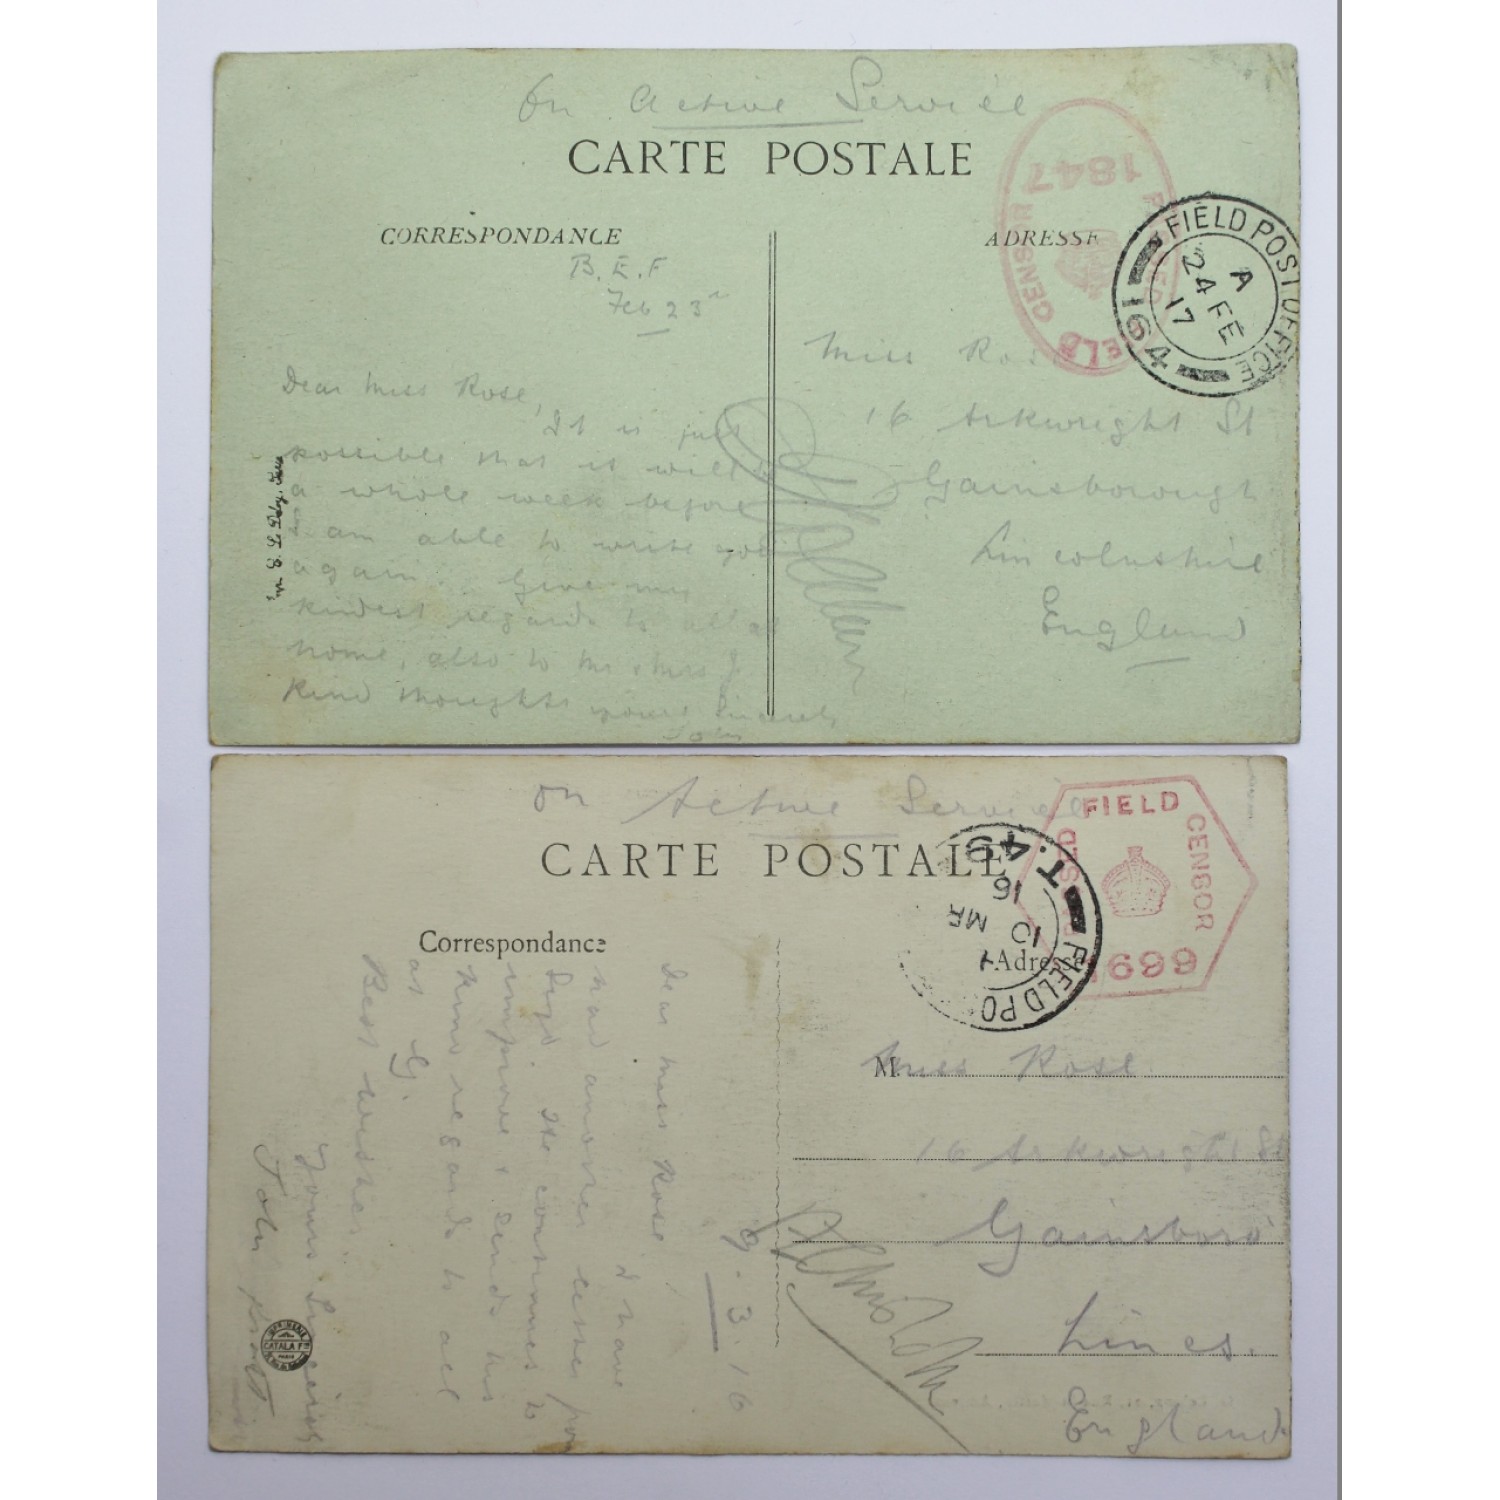 On Active Service
CARTE POSTALE
CORRESPONDANCE
ADRESSE
PASSED FIELD CENSOR
1847
FIELD POST OFFICE
164
A
24 FE
17
B.E.F
Feb 23
Dear Miss Rose,
It is just
possible that it will be
a whole week before
I am able to write you
again. Give my
kindest regards to all at
home, also to Mr & Mrs J
Kind thoughts yours Sincerely
John
Miss Rose
16 Arkwright St
Gainsborough
Lincolnshire
England
On Active Service
CARTE POSTALE
Correspondance
Adresse
PASSED FIELD CENSOR
1699
FIELD PO
T.49
10 MR
16
9.3.16
Dear Miss Rose,
I have
had another letter from
He continues to
improve & sends his
kind regards to all
at G
Best wishes.
Yours Sincerely
John
IMPRIMERIE
CATALA FRES
PARIS
M. Miss Rose
16 Arkwright St
Gainsboro
Lincs.
England